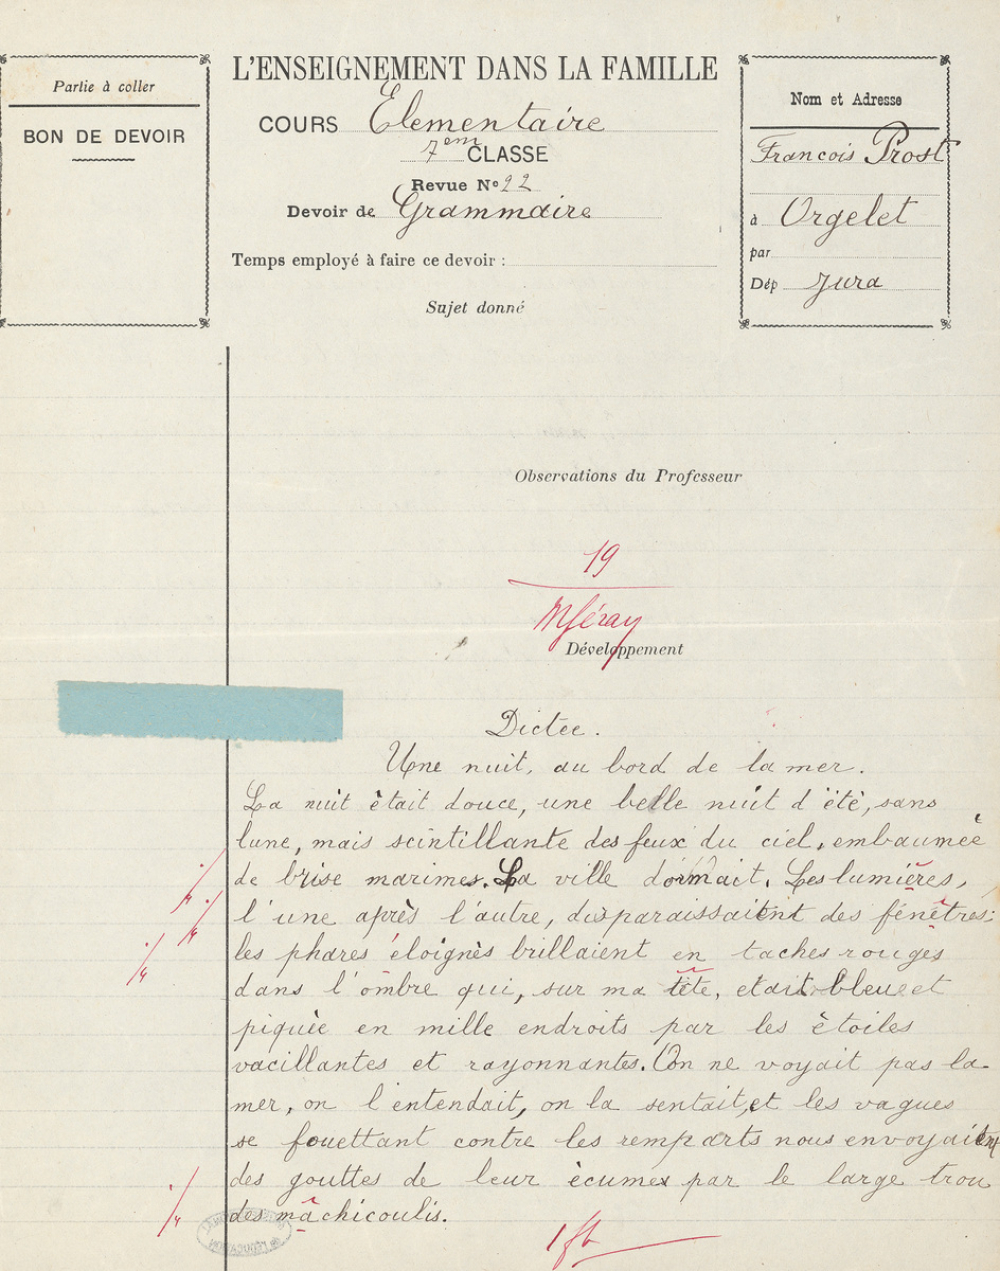 Partie à coller
BON DE DEVOIR
L'ENSEIGNEMENT DANS LA FAMILLE
COURS Elementaire
7em CLASSE
Revue No 22
Devoir de Grammaire
Temps employé à faire ce devoir :
Sujet donné
Nom et Adresse
Francois Prost
à Orgelet
par
Dép Jura
Observations du Professeur
19
Développement
Dictee.
Une nuit, au bord de la mer.
La nuit était douce, une belle nuit d'été, sans
lune, mais scintillante des feux du ciel, embaumée
de brise marimes. La ville dormait. Les lumières,
l'une après l'autre, disparaissaient des fenêtres:
les phares éloignès brillaient en taches rouges
dans l'ombre qui, sur ma tête, etait bleue et
piquée en mille endroits par les ètoiles
vacillantes et rayonnantes. On ne voyait pas la
mer, on l'entendait, on la sentait, et les vagues
se fouettant contre les remparts nous envoyaient
des gouttes de leur ècumes par le large trou
des mâchicoulis.